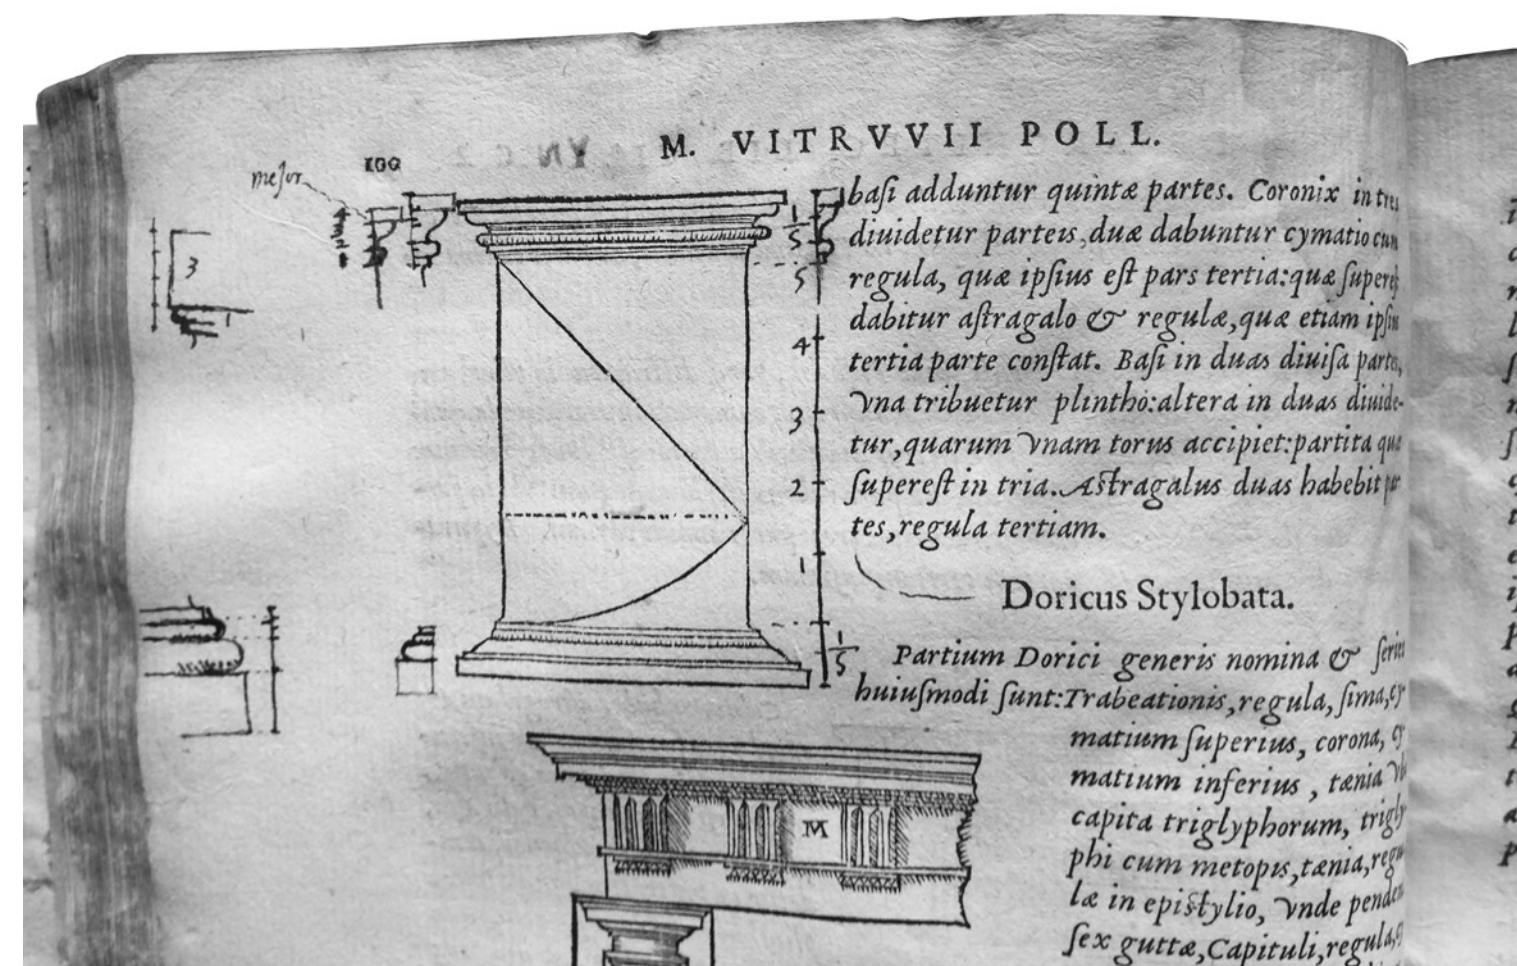 M. VITRVVII POLL.
mejor
baſi adduntur quintæ partes. Coronix in tres
diuidetur parteis, duæ dabuntur cymatio cum
regula, quæ ipſius eſt pars tertia: quæ ſupereſt
dabitur aſtragalo & regulæ, quæ etiam ipſius
tertia parte conſtat. Baſi in duas diuiſa partes,
vna tribuetur plintho: altera in duas diuide-
tur, quarum vnam torus accipiet: partita quæ
ſupereſt in tria. Aſtragalus duas habebit par
tes, regula tertiam.
1
5
5
4
3
2
1
1
5
3
1
Doricus Stylobata.
Partium Dorici generis nomina & ſeries
huiuſmodi ſunt: Trabeationis, regula, ſima, cy
matium ſuperius, corona, cy
matium inferius, tænia vbi
capita triglyphorum, trigly
phi cum metopis, tænia, regu
læ in epiſtylio, vnde pendent
ſex guttæ, Capituli, regula,
M